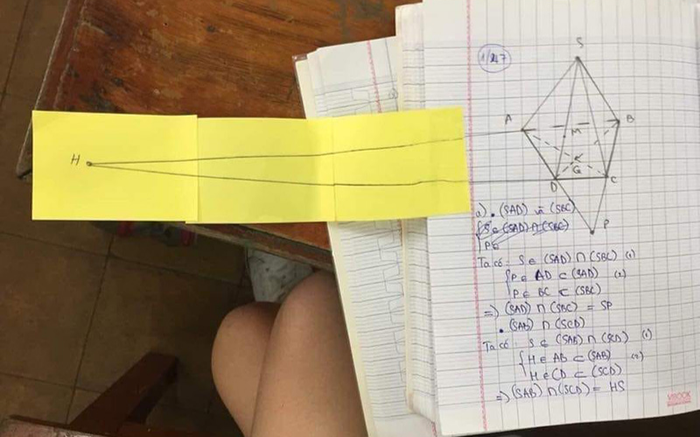 1/247
S
A
B
M
H
G
D
C
P
a) • (SAD) và (SBC)
Ta có: S ∈ (SAD) ∩ (SBC) (1)
{P ∈ AD ⊂ (SAD) (2)
P ∈ BC ⊂ (SBC)
=> (SAD) ∩ (SBC) = SP
• (SAB) ∩ (SCD)
Ta có: S ∈ (SAB) ∩ (SCD) (1)
{H ∈ AB ⊂ (SAB) (2)
H ∈ CD ⊂ (SCD)
=> (SAB) ∩ (SCD) = HS